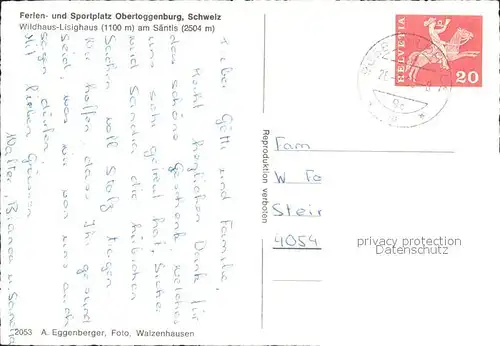 Ferien- und Sportplatz Obertoggenburg, Schweiz
Wildhaus-Lisighaus (1100 m) am Säntis (2504 m)
Lieber Götti und Familie,
Recht herzlichen Dank für
das schöne Geschenk, welches
uns sehr gefreut hat. Sicher
wird Sandra die hübschen
Sachen voll Stolz tragen.
Wir hoffen, dass Ihr gesund
seid, was wir von uns auch
sagen dürfen.
Mit lieben Grüssen
Walter, Bianca u. Sandra
HELVETIA
20
Reproduktion verboten
Fam
W Fa
Stein
4054
privacy protection
Datenschutz
2053 A. Eggenberger, Foto, Walzenhausen